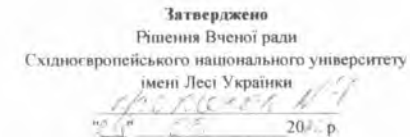 Затверджено
Рішення Вченої ради
Східноєвропейського національного університету
імені Лесі Українки
протокол №
20 р.